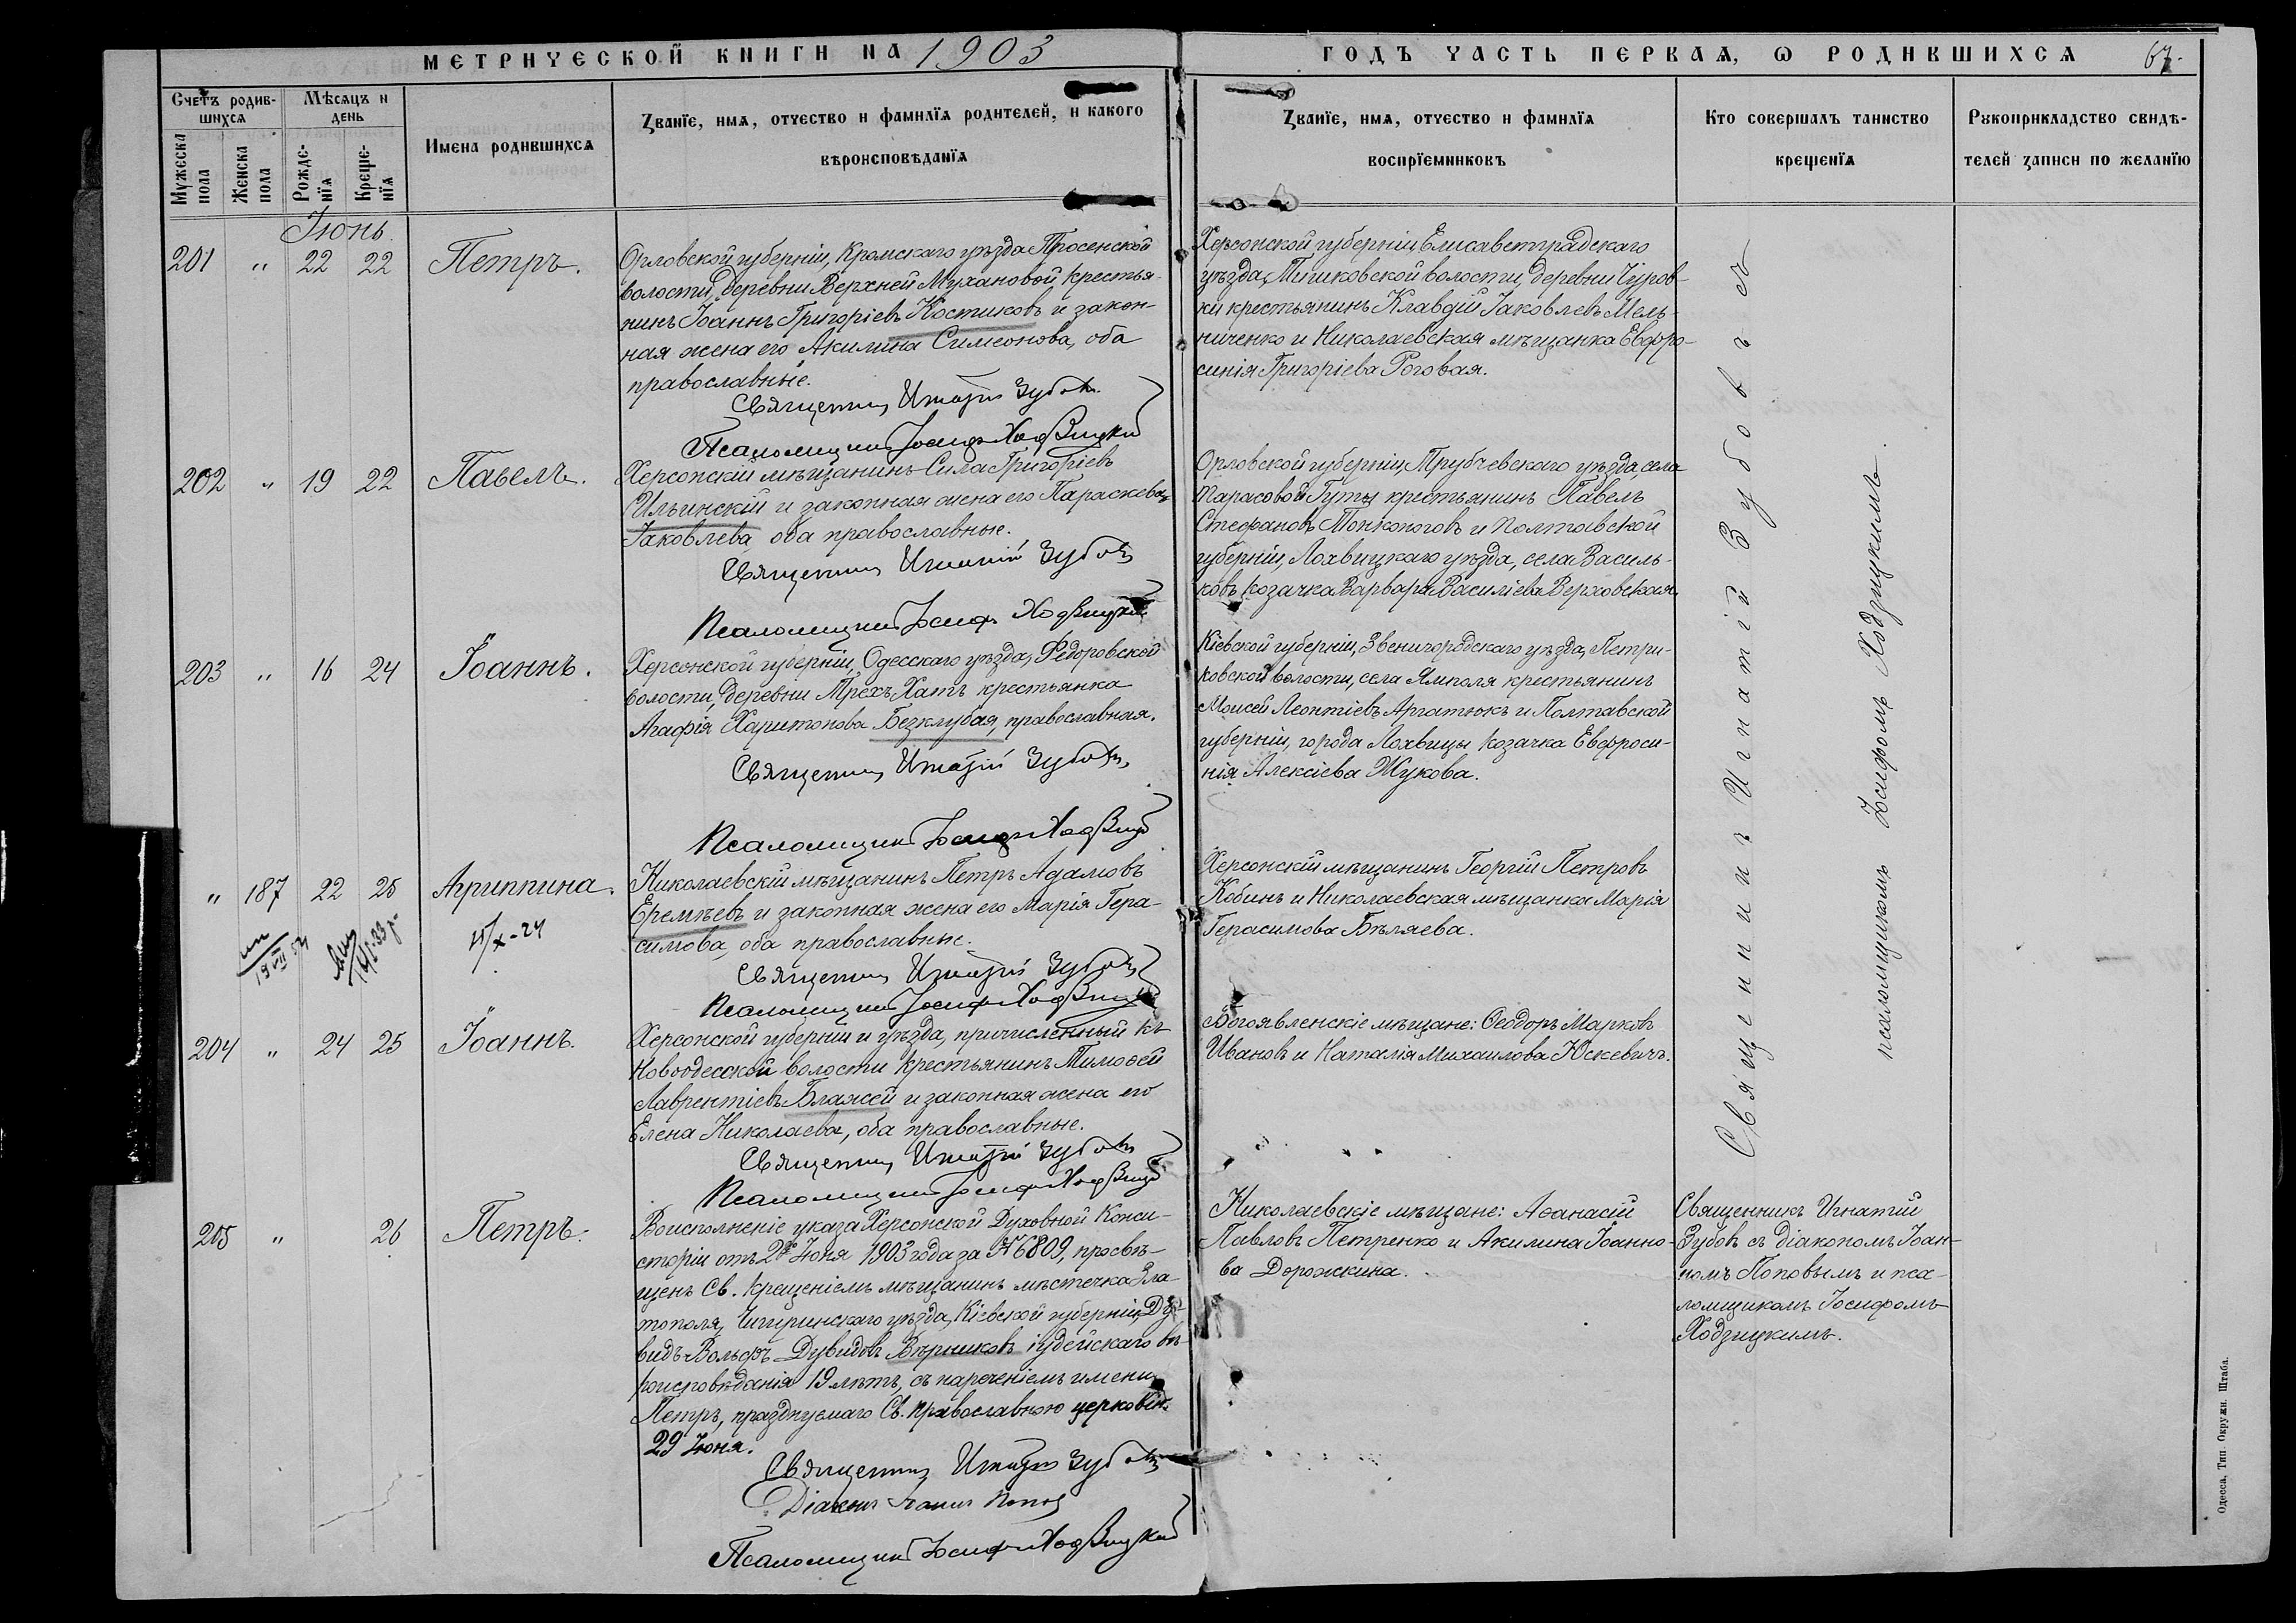 МЕТРИЧЕСКОЙ КНИГИ НА 1903
ГОДЪ ЧАСТЬ ПЕРВАЯ, Ѡ РОДИВШИХСЯ
67.
Счетъ родив-
шихся
Мѣсяцъ и
день
Мужеска
пола
Женска
пола
Рожде-
нїя
Креще-
нїя
Имена родившихся
Званїе, имя, отчество и фамилїя родителей, и какого
вѣроисповѣданїя
Званїе, имя, отчество и фамилїя
воспрїемниковъ
Кто совершалъ таинство
крещенїя
Рукоприкладство свидѣ-
телей записи по желанїю
Іюнь.
201 " 22 22 Петръ.
Орловской губерніи, Кромскаго уѣзда Просенской
волости, деревни Верхней Мухановой, крестья-
нинъ Іоаннъ Григоріевъ Костиковъ и закон-
ная жена его Акилина Симеонова, оба
православные.
Священникъ Игнатій Зубовъ
Псаломщикъ Іосифъ Ходзицкій
Херсонской губерніи, Елисаветградскаго
уѣзда, деревни
крестьянинъ Клавдій Іаковлевъ Мель-
ниченко и Николаевская мѣщанка Евфро-
синія Григоріева Роговая.
202 " 19 22 Павелъ.
Херсонскій мѣщанинъ Сила Григоріевъ
Ильинскій и законная жена его Параскева
Іаковлева, оба православные.
Священникъ Игнатій Зубовъ
Псаломщикъ Іосифъ Ходзицкій
Орловской губерніи, Трубчевскаго уѣзда, села
Тарасовой Гуты крестьянинъ Павелъ
Стефановъ Тонконоговъ и Полтавской
губерніи, Лохвицкаго уѣзда, села Василь-
ковъ козачка Варвара Василіева Верховская.
203 " 16 24 Іоаннъ.
Херсонской губерніи, Одесскаго уѣзда, Федоровской
волости, деревни Трехъ Хатъ крестьянка
Агафія Харитонова Безклубая, православная.
Священникъ Игнатій Зубовъ
Псаломщикъ Іосифъ Ходзицкій
Кіевской губерніи, Звенигородскаго уѣзда, Петри-
ковской волости, села Ямполя крестьянинъ
Моисей Леонтіевъ Аргатюкъ и Полтавской
губерніи, города Лохвицы козачка Евфроси-
нія Алексіева Жукова.
" 187 22 25 Агриппина.
Николаевскій мѣщанинъ Петръ Адамовъ
Еремѣевъ и законная жена его Марія Гера-
симова, оба православные.
Священникъ Игнатій Зубовъ
Псаломщикъ Іосифъ Ходзицкій
Херсонскій мѣщанинъ Георгій Петровъ
Кобинъ и Николаевская мѣщанка Марія
Герасимова Бѣляева.
204 " 24 25 Іоаннъ.
Херсонской губерніи и уѣзда, причисленный къ
Новоодесской волости крестьянинъ Тимоѳей
Лаврентіевъ Блажей и законная жена его
Елена Николаева, оба православные.
Священникъ Игнатій Зубовъ
Псаломщикъ Іосифъ Ходзицкій
Богоявленскіе мѣщане: Ѳеодоръ Марковъ
Ивановъ и Наталія Михаилова Юскевичъ.
Священникъ Игнатій Зубовъ съ
псаломщикомъ Іосифомъ Ходзицкимъ
205 " 26 Петръ.
Воисполненіе указа Херсонской Духовной Конси-
сторіи отъ Іюня 1903 года за № 6809, просвѣ-
щенъ Св. Крещеніемъ мѣщанинъ мѣстечка Зла-
тополя, Чигиринскаго уѣзда, Кіевской губерніи, Ду-
видъ-Вольфъ Дувидовъ Вѣрниковъ іудейскаго вѣ-
роисповѣданія 19 лѣтъ, съ нареченіемъ имени
Петръ, празднуемаго Св. Православною церковію
29 Іюня.
Священникъ Игнатій Зубовъ
Діаконъ Іоаннъ Поповъ
Псаломщикъ Іосифъ Ходзицкій
Николаевскіе мѣщане: Аѳанасій
Павловъ Петренко и Акилина Іоанно-
ва Дорожкина.
Священникъ Игнатій
Зубовъ съ діакономъ Іоан-
номъ Поповымъ и пса-
ломщикомъ Іосифомъ
Ходзицкимъ.
Одесса, Тип. Окружн. Штаба.